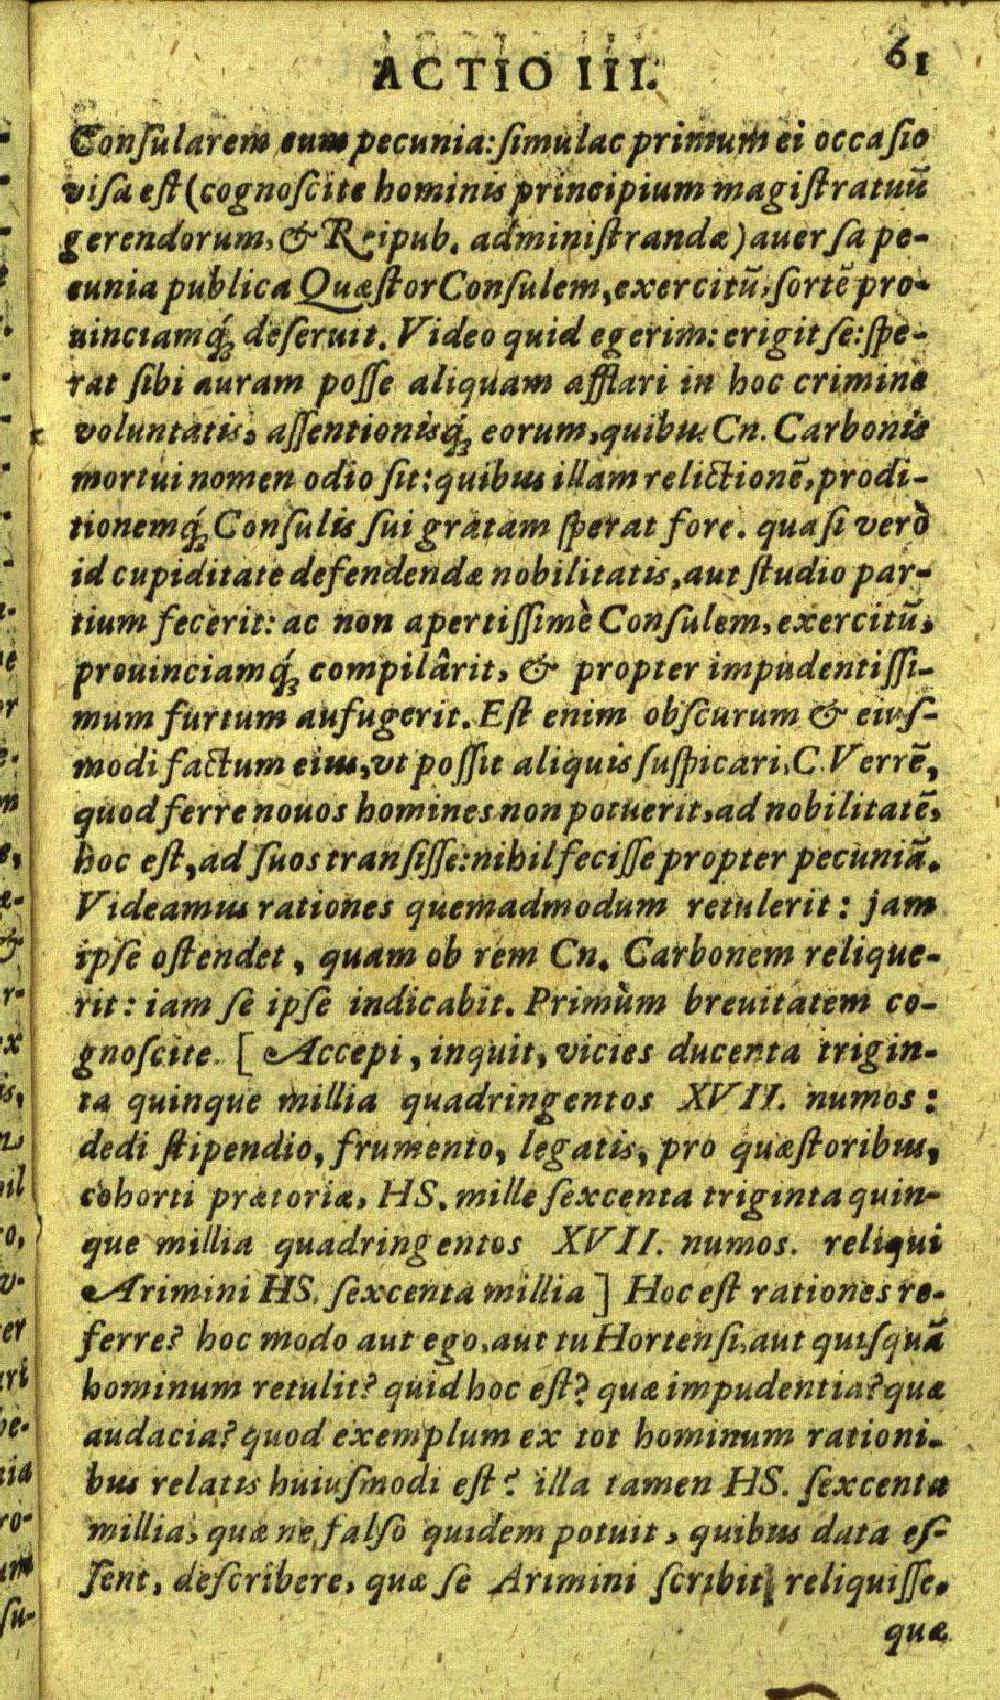 ACTIO III. 61
Conſularem cum pecunia: ſimulac primum ei occaſio
viſa eſt (cognoſcite hominis principium magiſtratuũ
gerendorum, & Reipub. adminiſtrandæ) auerſa pe-
cunia publica Quæſtor Conſulem, exercitũ, ſortẽ pro-
uinciamq́ꝫ deſeruit. Video quid egerim: erigit ſe: ſpe-
rat ſibi auram poſſe aliquam afflari in hoc crimine
voluntatis, aſſentionisq́ꝫ eorum, quibus Cn. Carbonis
mortui nomen odio ſit: quibus illam relictionẽ, prodi-
tionemq́ꝫ Conſulis ſui gratam ſperat fore. quaſi verò
id cupiditate defendendæ nobilitatis, aut ſtudio par-
tium fecerit: ac non apertiſſimè Conſulem, exercitũ,
prouinciamq́ꝫ compilârit, & propter impudentiſſi-
mum furtum aufugerit. Eſt enim obſcurum & eiuſ-
modi factum eius, vt poſſit aliquis ſuſpicari, C. Verrẽ,
quod ferre nouos homines non potuerit, ad nobilitatẽ,
hoc eſt, ad ſuos tranſiſſe: nihil feciſſe propter pecuniã.
Videamus rationes quemadmodum retulerit: jam
ipſe oſtendet, quam ob rem Cn. Carbonem relique-
rit: iam ſe ipſe indicabit. Primùm breuitatem co-
gnoſcite. [ Accepi, inquit, vicies ducenta trigin-
ta quinque millia quadringentos XVII. numos:
dedi ſtipendio, frumento, legatis, pro quæſtoribus,
cohorti prætoriæ, HS. mille ſexcenta triginta quin-
que millia quadringentos XVII. numos. reliqui
Arimini HS. ſexcenta millia ] Hoc eſt rationes re-
ferre? hoc modo aut ego, aut tu Hortenſi, aut quiſquã
hominum retulit? quid hoc eſt? quæ impudentia? quæ
audacia? quod exemplum ex tot hominum rationi-
bus relatis huiuſmodi eſt? illa tamen HS. ſexcenta
millia, quæ ne falſò quidem potuit, quibus data eſ-
ſent, deſcribere, quæ ſe Arimini ſcribit reliquiſſe,
quæ